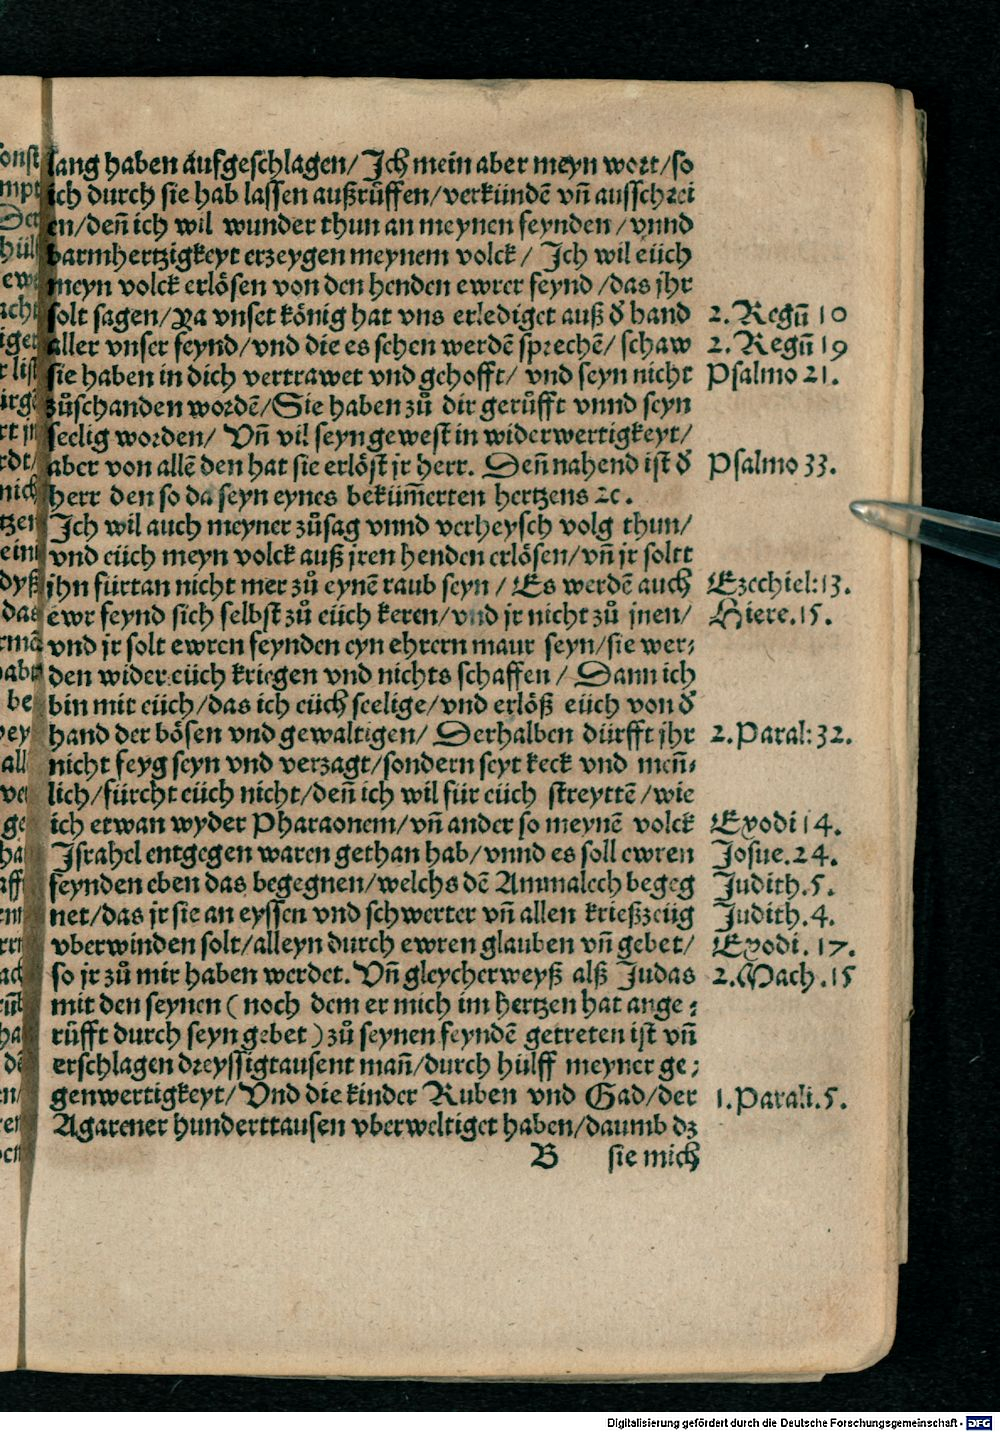 lang haben aufgeschlagen/ Ich mein aber meyn wort/so
ich durch sie hab lassen außrůffen/verkündē vn̄ ausschrei
en/den̄ ich wil wunder thun an meynen feynden /vnnd
barmhertzigkeyt erzeygen meynem volck/ Ich wil eüch
meyn volck erlösen von den henden ewrer feynd /das jhr
solt sagen/Ya vnser könig hat vns erlediget auß ð hand 2. Regū 10
aller vnser feynd/vnd die es sehen werdē sprechē/ schaw 2. Regū 19
sie haben in dich vertrawet vnd gehofft/ vnd seyn nicht Psalmo 21.
zůschanden wordē/Sie haben zů dir gerůfft vnnd seyn
seelig worden/ Vn̄ vil seyn gewest in widerwertigkeyt/
aber von allē den hat sie erlöst jr herr. Den̄ nahend ist ð Psalmo 33.
herr den so da seyn eynes beküm̄erten hertzens ⁊c.
Ich wil auch meyner zůsag vnnd verheysch volg thun/
vnd eüch meyn volck auß jren henden erlösen/vn̄ jr soltt
jhn fürtan nicht mer zů eynē raub seyn / Es werdē auch Ezechiel:13.
ewr feynd sich selbst zů eüch keren/vnd jr nicht zů jnen/ Hiere.15.
vnd jr solt ewren feynden eyn ehrern maur seyn/sie wer⸗
den wider eüch kriegen vnd nichts schaffen / Dann ich
bin mit eüch/das ich eüch seelige/vnd erlöß eüch von ð
hand der bösen vnd gewaltigen/ Derhalben dürfft jhr 2.Paral:32.
nicht feyg seyn vnd verzagt/sondern seyt keck vnd men̄⸗
lich/fürcht eüch nicht/den̄ ich wil für eüch streyttē /wie
ich etwan wyder Pharaonem/vn̄ ander so meynē volck Exodi 14.
Israhel entgegen waren gethan hab/vnnd es soll ewren Josue.24.
feynden eben das begegnen/welchs dē Ammalech begeg Judith.5.
net/das jr sie an eyssen vnd schwerter vn̄ allen krießzeüg Judith.4.
vberwinden solt/alleyn durch ewren glauben vn̄ gebet/ Exodi. 17.
so jr zů mir haben werdet. Vn̄ gleycherweyß alß Judas 2.Mach.15
mit den seynen ( noch dem er mich im hertzen hat ange⸗
růfft durch seyn gebet ) zů seynen feyndē getreten ist vn̄
erschlagen dreyssigtausent man̄/durch hülff meyner ge⸗
genwertigkeyt/ Vnd die kinder Ruben vnd Gad/der 1.Parali.5.
Agarener hunderttausen vberweltiget haben/daumb dz
B sie mich
Digitalisierung gefördert durch die Deutsche Forschungsgemeinschaft - DFG